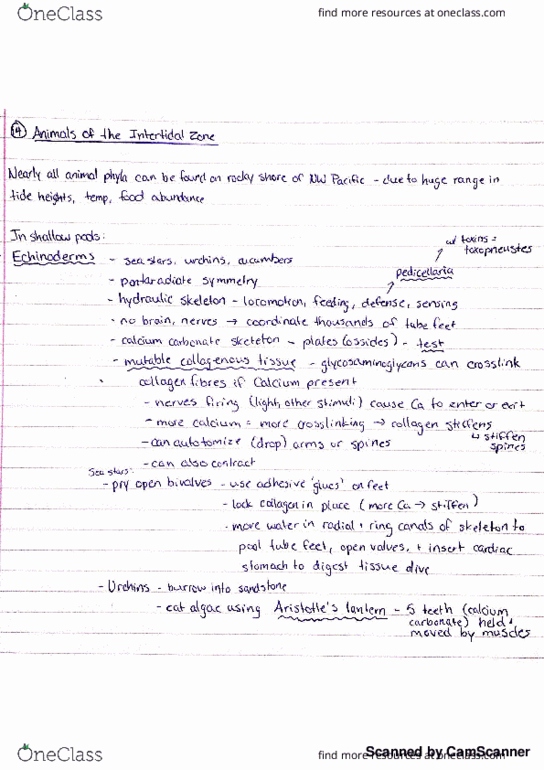 OneClass
find more resources at oneclass.com
(4) Animals of the Intertidal Zone
Nearly all animal phyla can be found on rocky shore of NW Pacific - due to huge range in
tide heights, temp, food abundance
In shallow pools:
w/ toxins =
toxopneustes
Echinoderms - sea stars, urchins, cucumbers
pedicellaria
- pentaradiate symmetry
- hydraulic skeleton - locomotion, feeding, defense, sensing
- no brain, nerves → coordinate thousands of tube feet
- calcium carbonate skeleton - plates (ossides) - test
- mutable collagenous tissue - glycosaminoglycans can crosslink
collagen fibres if Calcium present
- nerves firing (light, other stimuli) cause Ca to enter or exit
- more calcium = more crosslinking → collagen stiffens
↳ stiffen
spines
- can autotomize (drop) arms or spines
- can also contract
Sea stars:
- pry open bivalves - use adhesive 'glues' on feet
- lock collagen in place (more Ca → stiffen)
- more water in radial + ring canals of skeleton to
pool tube feet, open valves, + insert cardiac
stomach to digest tissue alive
- Urchins - burrow into sandstone
- eat algae using Aristotle's lantern - 5 teeth (calcium
carbonate) held +
moved by muscles
Scanned by CamScanner
OneClass
find more resources at oneclass.com